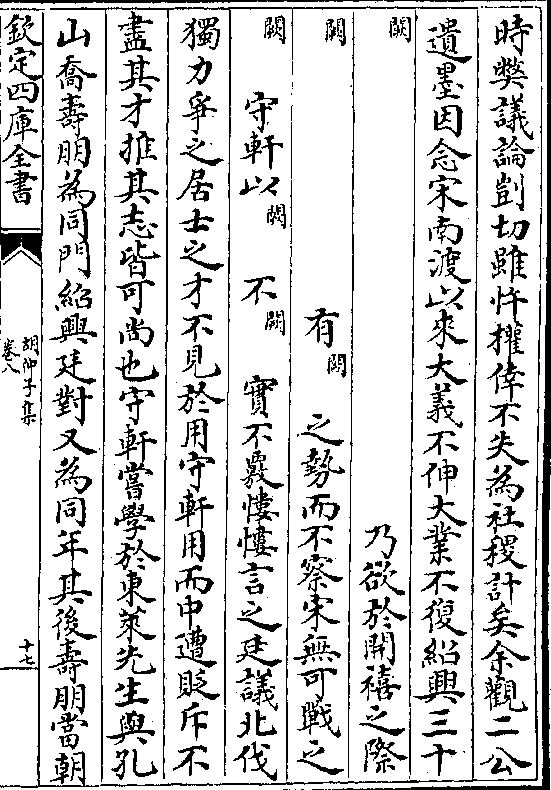 時獘議論剴切雖忤權倖不失為社稷計矣余觀二公
遺墨因念宋南渡以來大義不伸大業不復紹興三十
闕 乃欲於開禧之際
闕 有闕 之勢而不察宋無可戰之
闕 守軒以闕 不闕 實不覈悽悽言之廷議北伐
獨力爭之居士之才不見於用守軒用而中遭貶斥不
盡其才推其志皆可尚也守軒嘗學於東萊先生與孔
山喬壽朋為同門紹興廷對又為同年其後壽朋當朝
欽定四庫全書
胡仲子集
卷八
十七